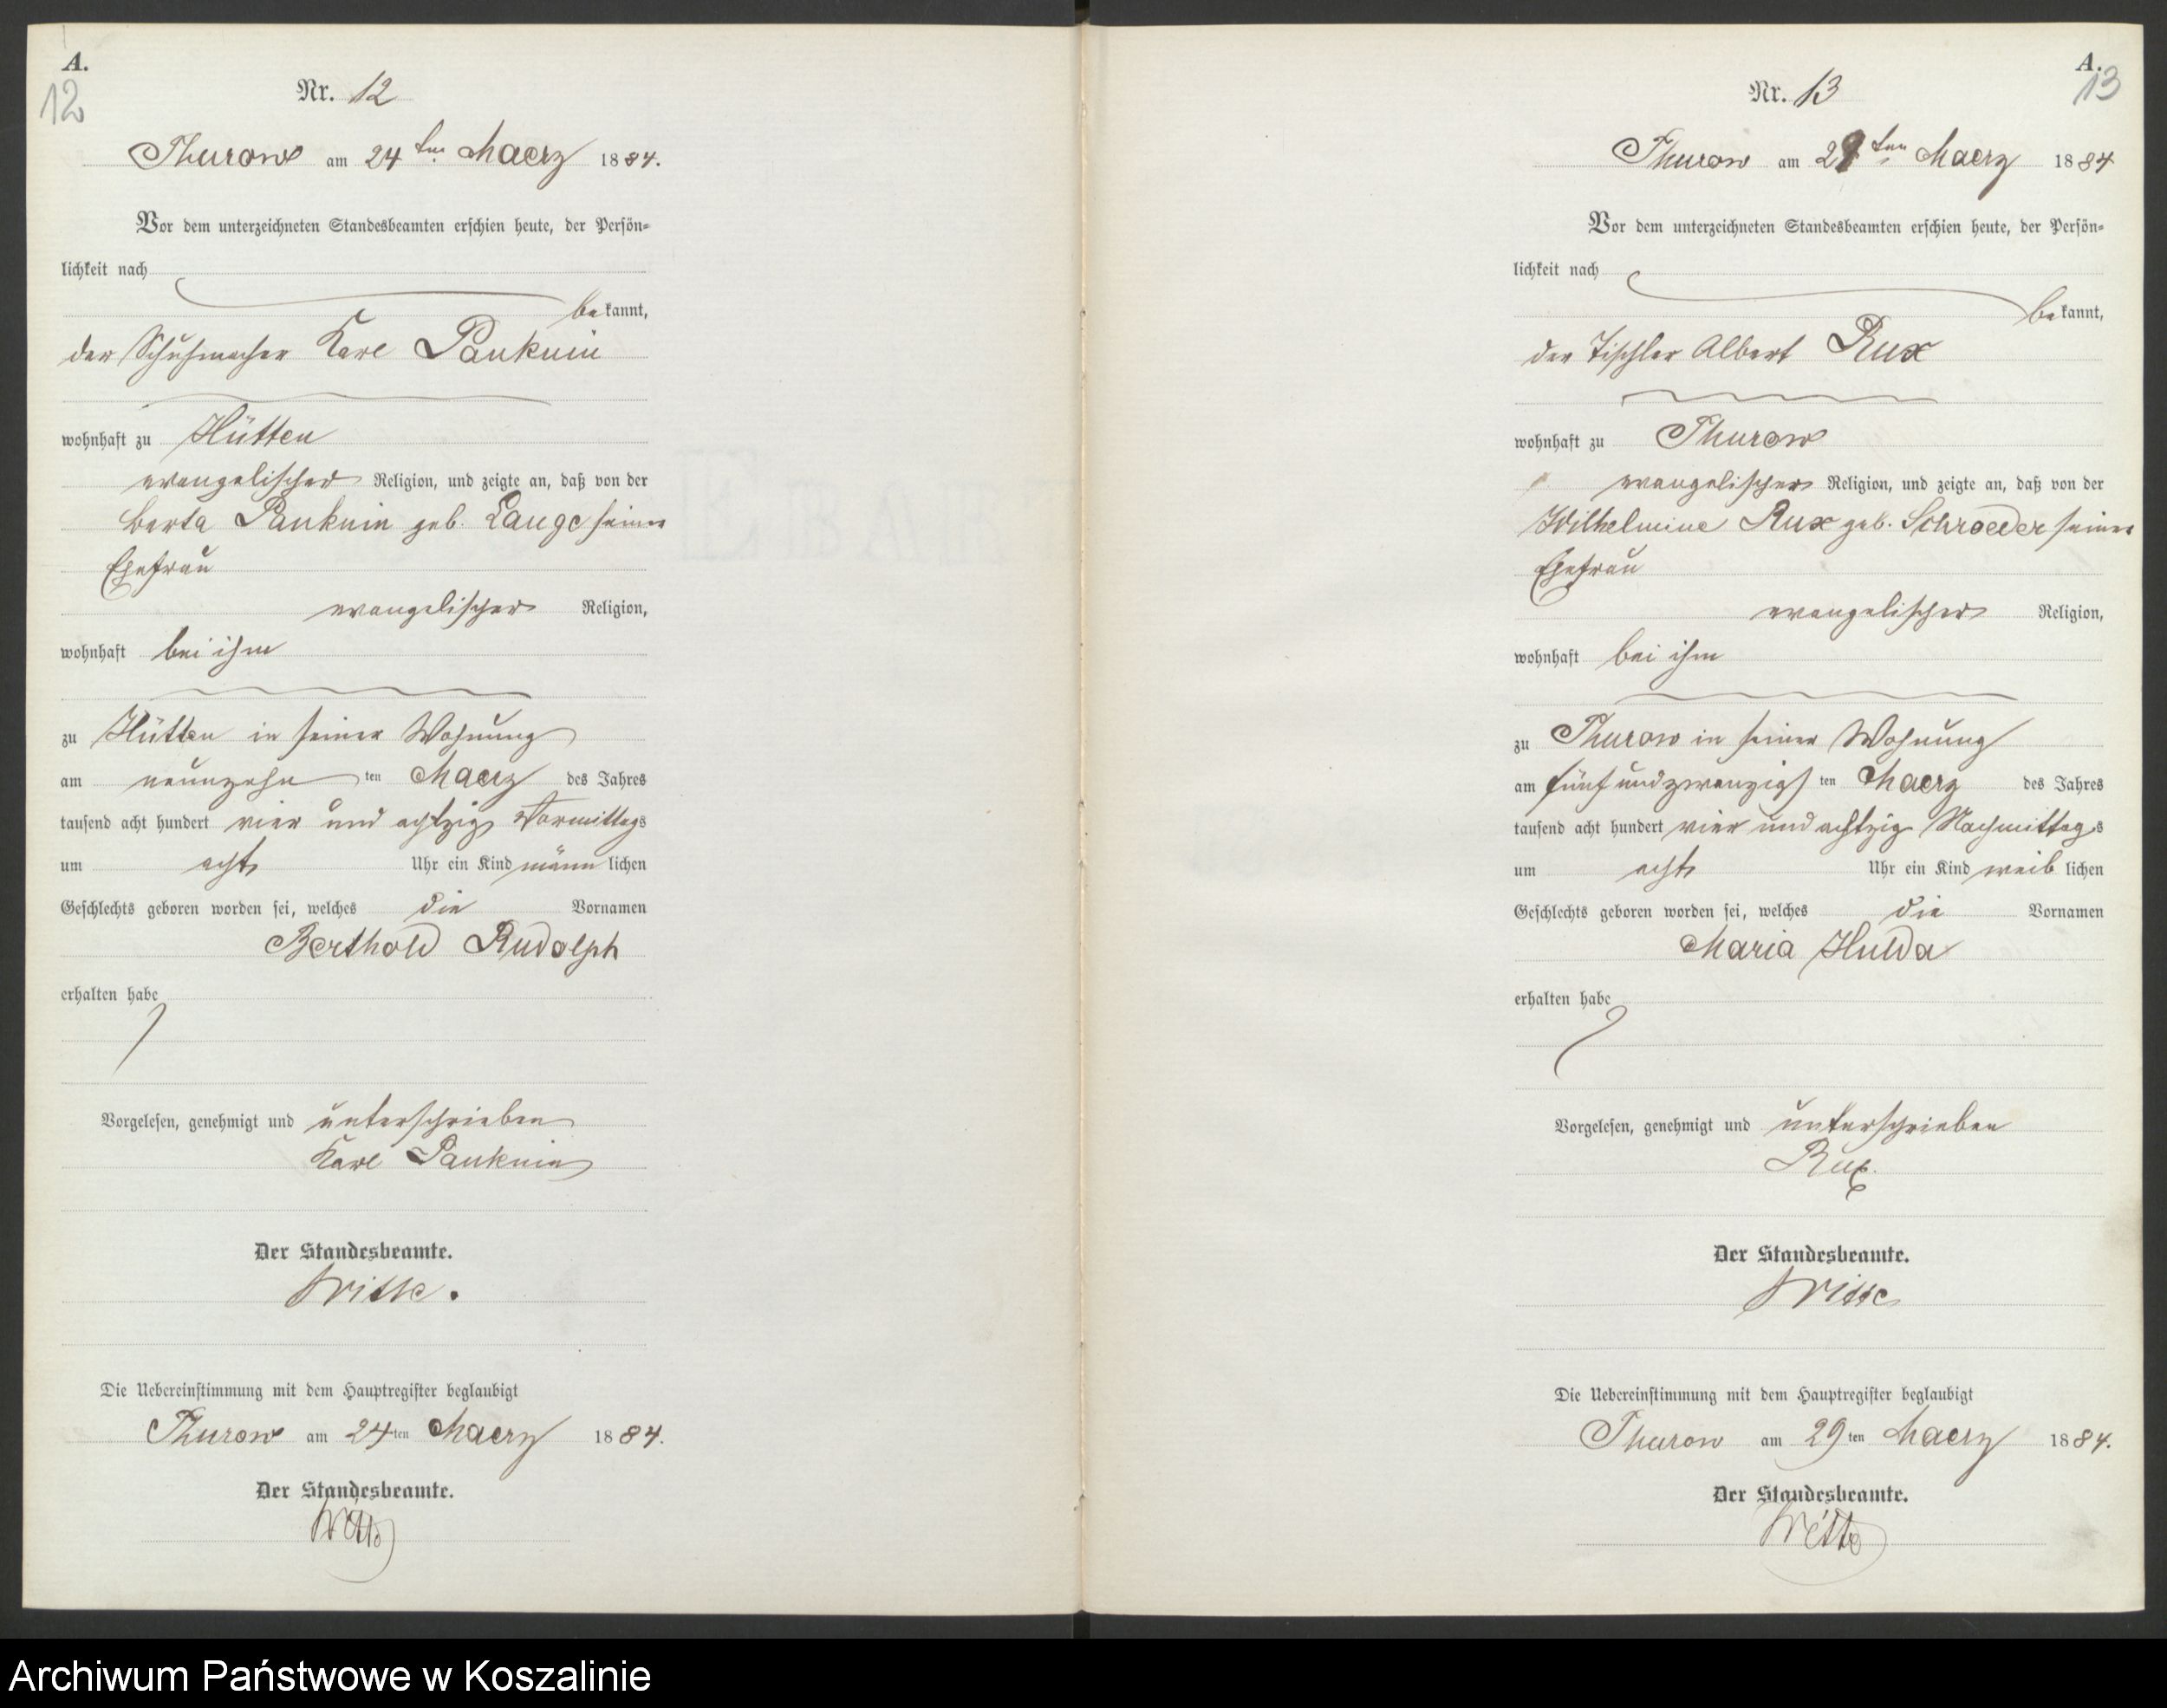 A.
12
Nr. 12
Thurow am 24ten Maerz 1884.
Vor dem unterzeichneten Standesbeamten erschien heute, der Persön-
lichkeit nach
bekannt,
der Schuhmacher Karl Panknin
wohnhaft zu Hütten
evangelischer Religion, und zeigte an, daß von der
Berta Panknin geb. Lange seiner
Ehefrau
evangelischer Religion,
wohnhaft bei ihm
zu Hütten in seiner Wohnung
am neunzehn ten Maerz des Jahres
tausend acht hundert vier und achtzig Vormittags
um acht Uhr ein Kind männlichen
Geschlechts geboren worden sei, welches die Vornamen
Berthold Rudolph
erhalten habe
Vorgelesen, genehmigt und unterschrieben
Karl Panknin
Der Standesbeamte.
Witte.
Die Uebereinstimmung mit dem Hauptregister beglaubigt
Thurow am 24ten Maerz 1884.
Der Standesbeamte.
Witte
A.
13
Nr. 13
Thurow am 29ten Maerz 1884
Vor dem unterzeichneten Standesbeamten erschien heute, der Persön-
lichkeit nach
bekannt,
der Tischler Albert Rux
wohnhaft zu Thurow
evangelischer Religion, und zeigte an, daß von der
Wilhelmine Rux geb. Schroeder seiner
Ehefrau
evangelischer Religion,
wohnhaft bei ihm
zu Thurow in seiner Wohnung
am fünf und zwanzigs ten Maerz des Jahres
tausend acht hundert vier und achtzig Nachmittags
um acht Uhr ein Kind weiblichen
Geschlechts geboren worden sei, welches die Vornamen
Maria Hulda
erhalten habe
Vorgelesen, genehmigt und unterschrieben
Rux.
Der Standesbeamte.
Witte
Die Uebereinstimmung mit dem Hauptregister beglaubigt
Thurow am 29ten Maerz 1884.
Der Standesbeamte.
Witte
Archiwum Państwowe w Koszalinie